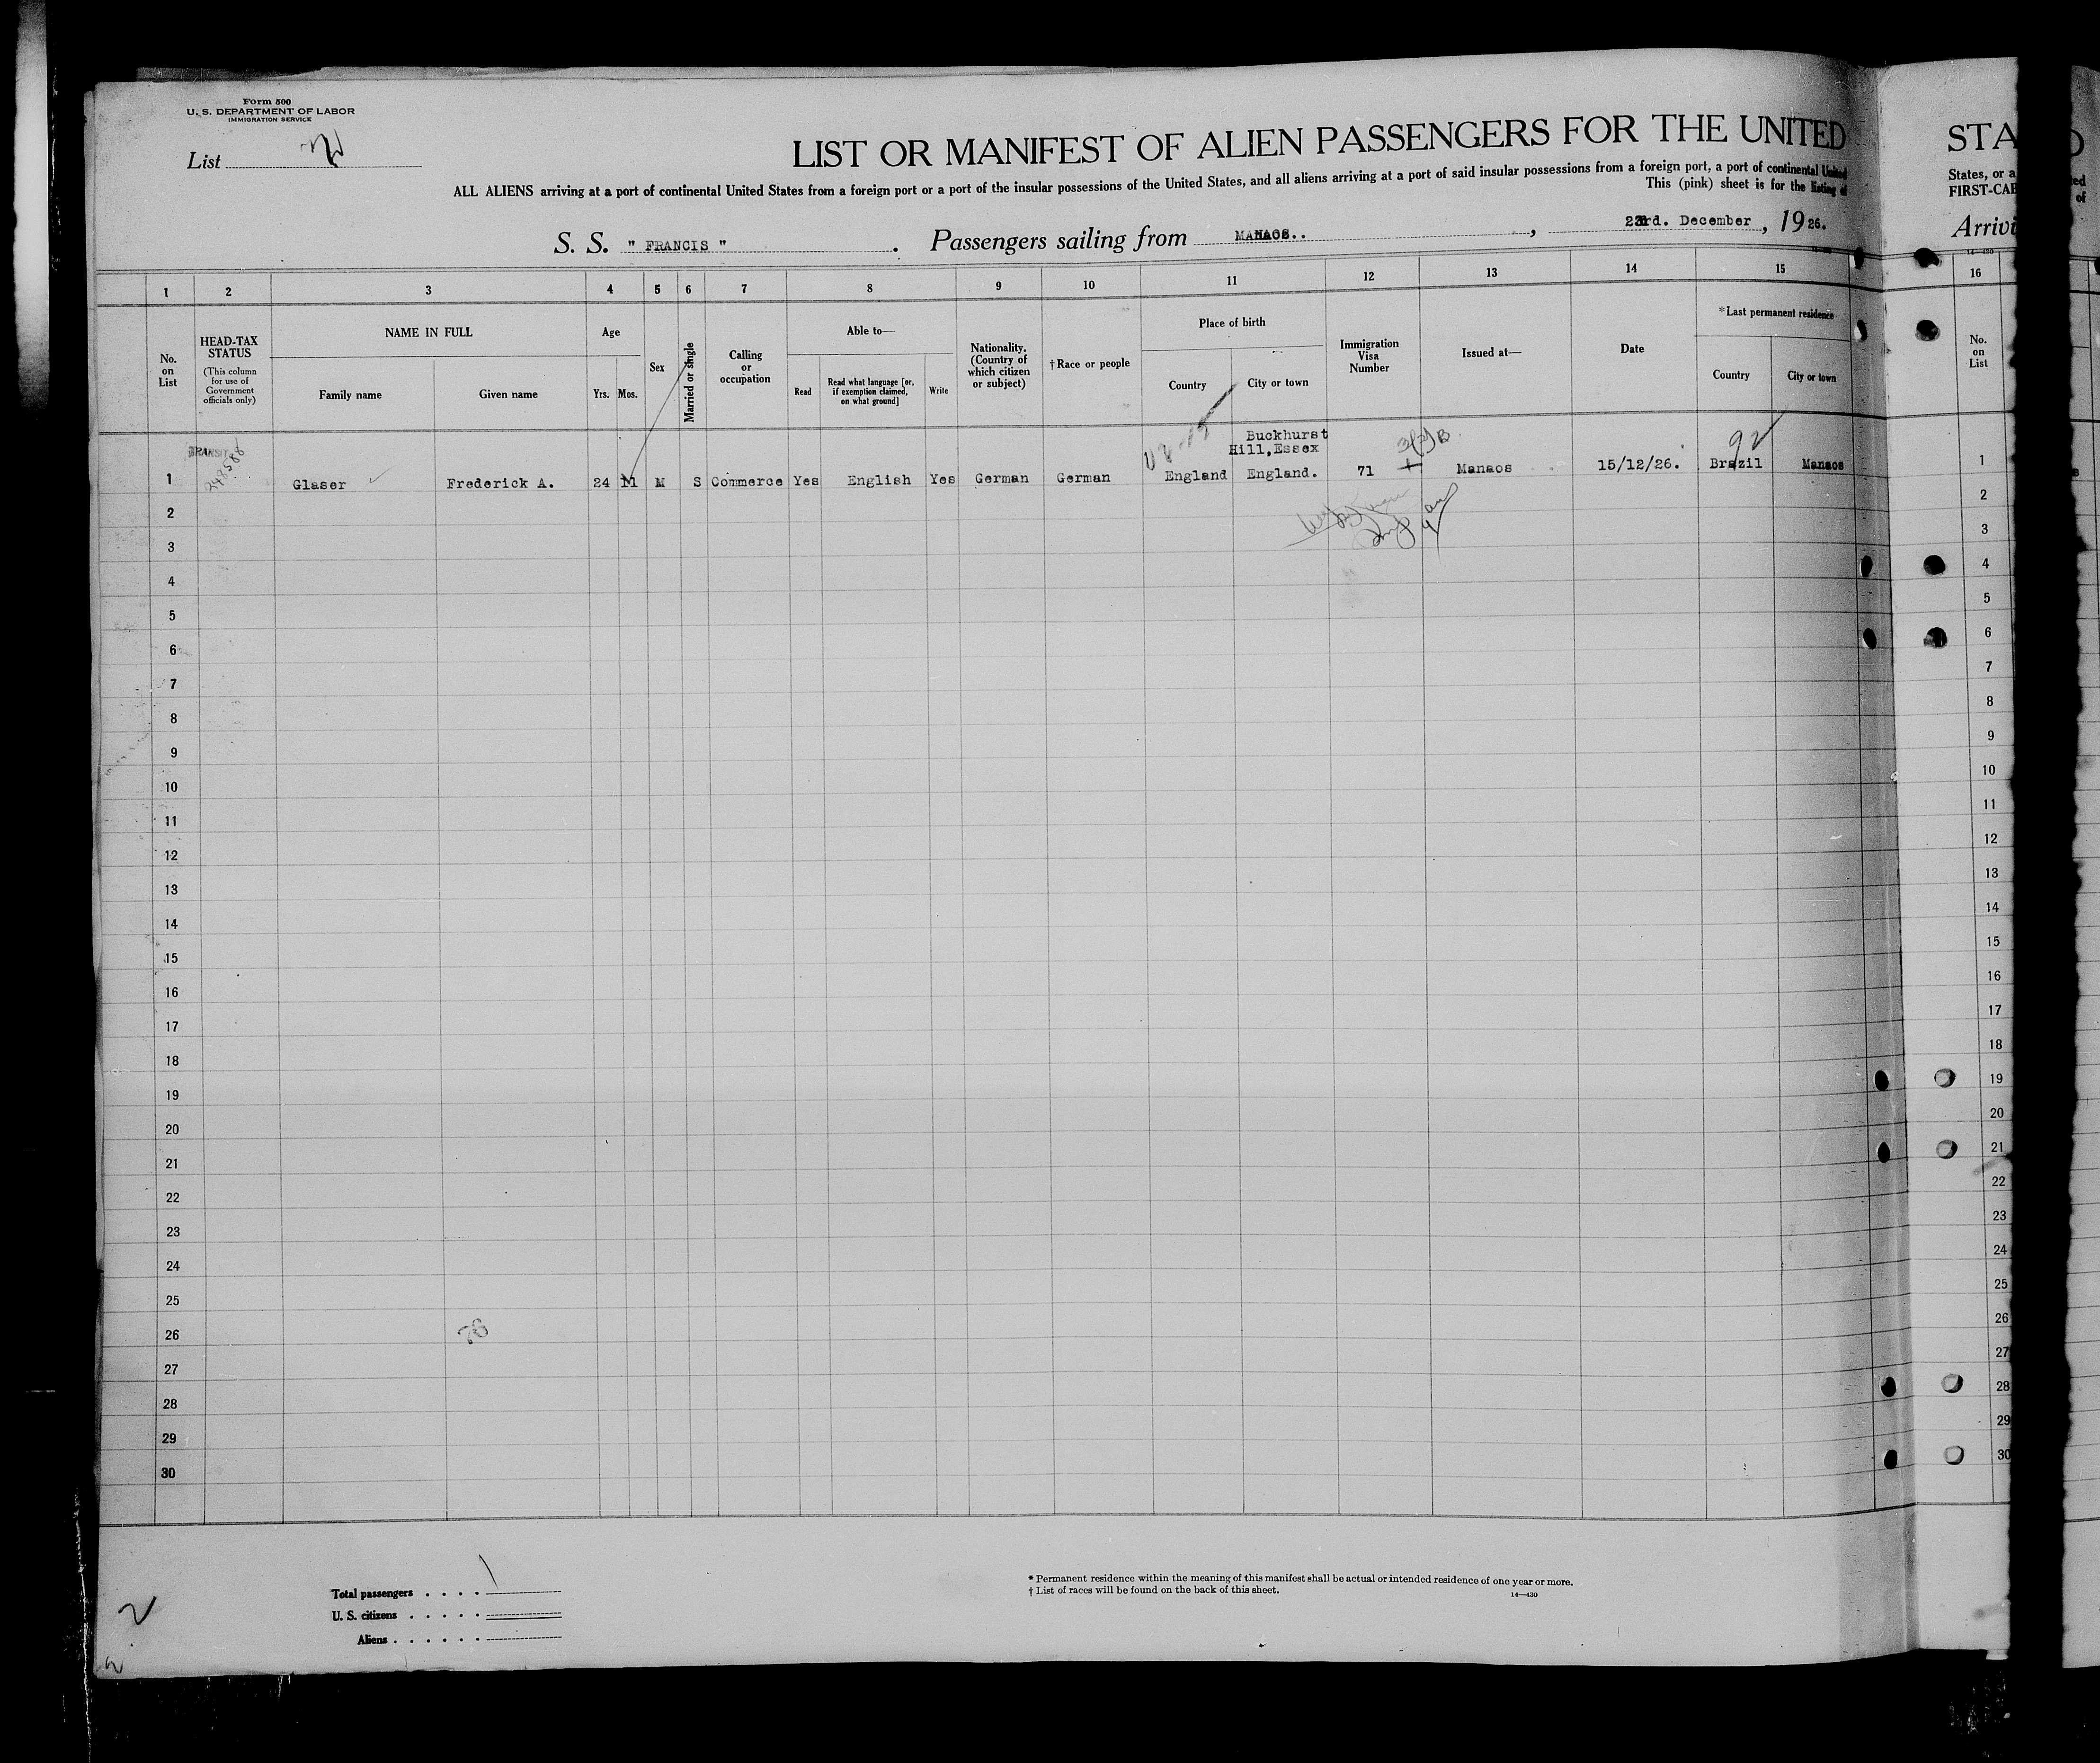 Form 500
U. S. DEPARTMENT OF LABOR
IMMIGRATION SERVICE
List
LIST OR MANIFEST OF ALIEN PASSENGERS FOR THE UNITED
ALL ALIENS arriving at a port of continental United States from a foreign port or a port of the insular possessions of the United States, and all aliens arriving at a port of said insular possessions from a foreign port, a port of continental United
This (pink) sheet is for the listing of
S. S. " FRANCIS " . Passengers sailing from MANAOS.. , 23rd. December , 1926.
STA
States, or a
FIRST-CAB
Arrivi
1 2 3 4 5 6 7 8 9 10 11 12 13 14 15
16
No. on List
HEAD-TAX STATUS
(This column for use of Government officials only)
NAME IN FULL
Family name
Given name
Age
Yrs.
Mos.
Sex
Married or single
Calling or occupation
Able to—
Read
Read what language [or, if exemption claimed, on what ground]
Write
Nationality. (Country of which citizen or subject)
†Race or people
Place of birth
Country
City or town
Immigration Visa Number
Issued at—
Date
*Last permanent residence
Country
City or town
No. on List
TRANSIT
248588
Buckhurst
Hill,Essex
3(2)B
92
1 Glaser Frederick A. 24 M S Commerce Yes English Yes German German England England. 71 Manaos 15/12/26. Brazil Manaos 1
2 2
3 3
4 4
5 5
6 6
7 7
8 8
9 9
10 10
11 11
12 12
13 13
14 14
15 15
16 16
17 17
18 18
19 19
20 20
21 21
22 22
23 23
24 24
25 25
26 26
27 27
28 28
29 29
30 30
Total passengers . . . .
U. S. citizens . . . . .
Aliens . . . . . .
* Permanent residence within the meaning of this manifest shall be actual or intended residence of one year or more.
† List of races will be found on the back of this sheet.
14—430
2